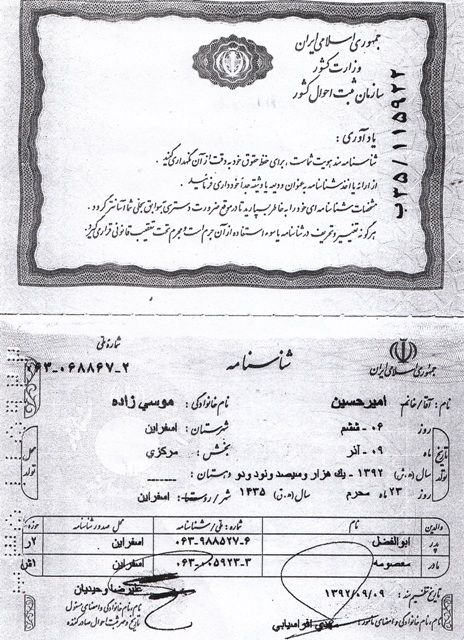 جمهوری اسلامی ایران
وزارت کشور
سازمان ثبت احوال کشور
ب۳۵/۱۱۵۹۲۲
یادآوری :
شناسنامه سند هویت شماست ، برای حفظ حقوق خود به دقت از آن نگهداری کنید .
از ارائه یا اخذ شناسنامه به عنوان ودیعه یا وثیقه جداً خودداری فرمائید .
مشخصات شناسنامه ای خود را به خاطر بسپارید تا در موقع ضرورت دسترسی به سوابق سجلی شما آسانتر گردد .
هرگونه تغییر و تحریف در شناسنامه یا سوء استفاده از آن جرم است و مجرم تحت تعقیب قانونی قرار می گیرد .
جمهوری اسلامی ایران
شناسنامه
شماره ملی
۰۶۳-۰۶۸۸۶۷-۲
نام : آقا/خانم امیرحسین نام خانوادگی : موسی زاده
تاریخ تولد
روز ۰۶ - ششم
ماه ۰۹ - آذر
سال (ه.ش) ۱۳۹۲ - یک هزار و سیصد و نود و دو
روز ۲۳ ماه محرم سال (ه.ق) ۱۴۳۵
محل تولد
شهرستان : اسفراین
بخش : مرکزی
دهستان : ------
شهر/روستا : اسفراین
والدین نام شماره : ملی/شناسنامه محل صدور شناسنامه حوزه
پدر ابوالفضل ۰۶۳-۹۸۸۵۲۷-۶ اسفراین ۲ر
مادر معصومه اسفراین
تاریخ تنظیم سند ۱۳۹۲/۰۹/۰۹
نام ، نام خانوادگی و امضای مأمور : مهدی افراسیابی
علیرضا وحیدیان
نام ، نام خانوادگی و امضای مسئول
و مهر ثبت احوال صادرکننده